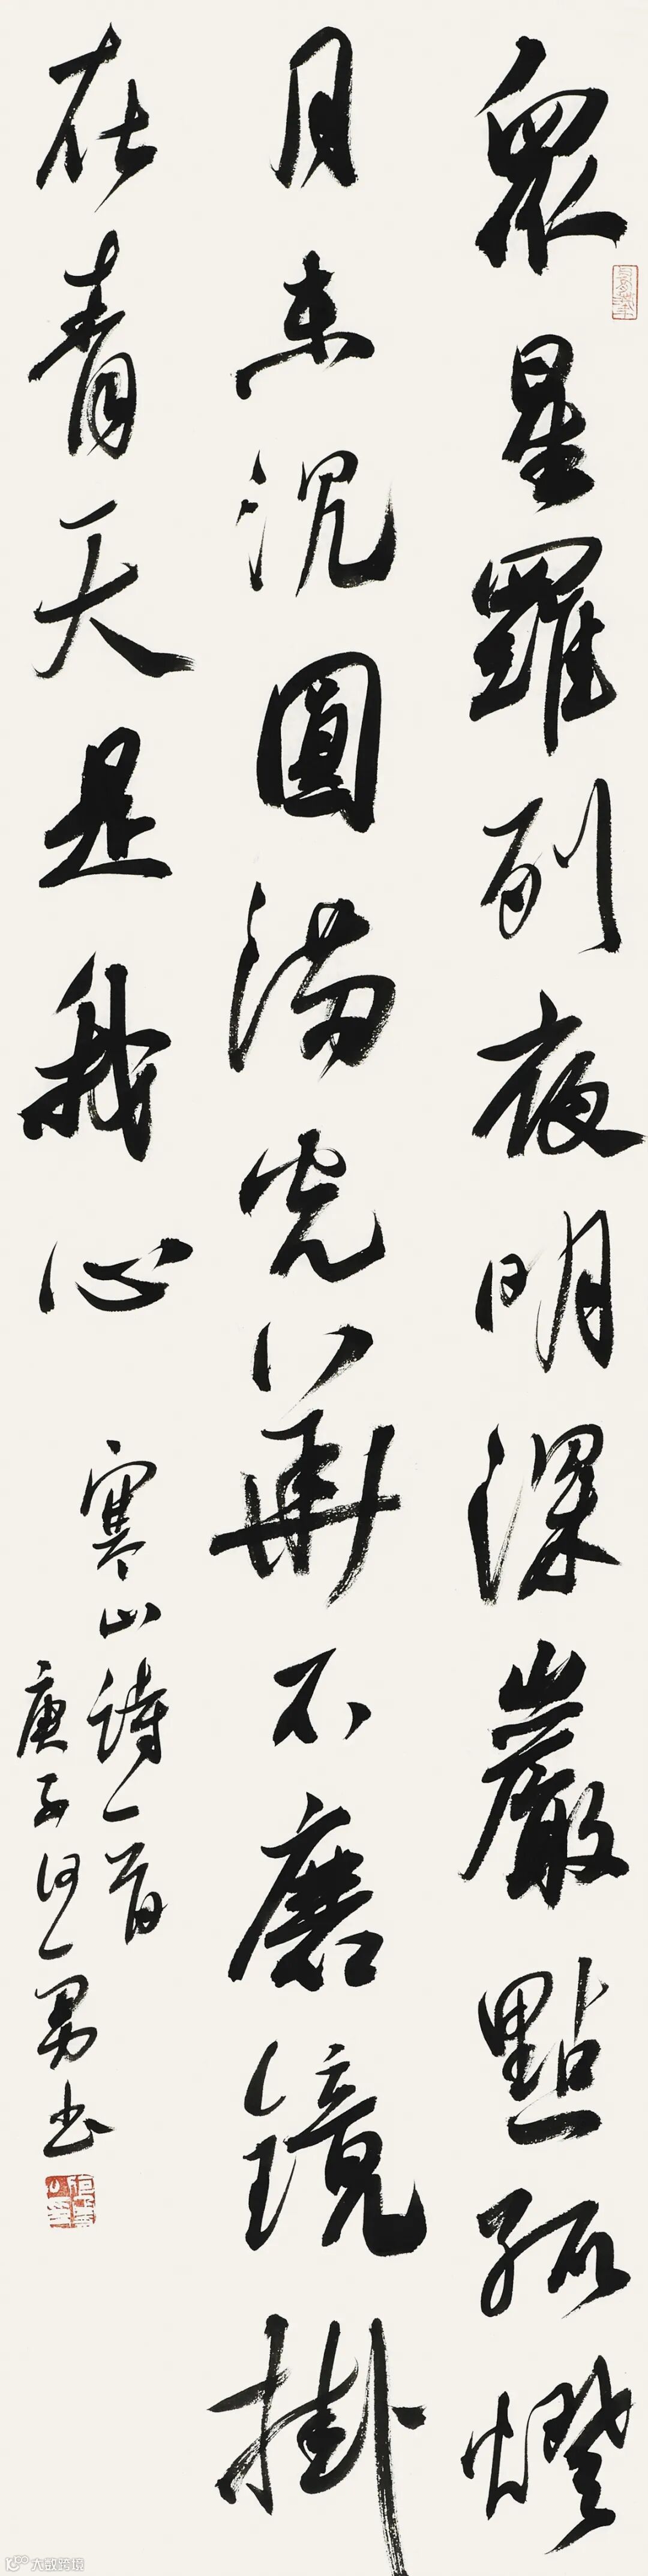 眾星羅列夜明深巖點孤燈
月未沉圓滿光華不磨鏡掛
在青天是我心
寒山詩一首
庚子何一男书
大啟跨境